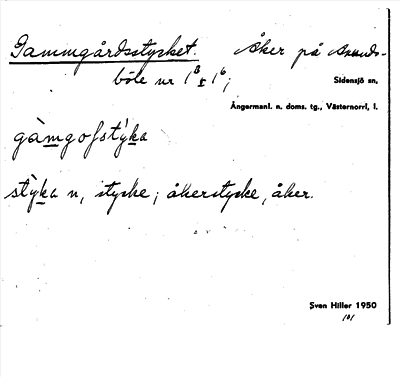 Gammgårdsstycket. Åker på Brands-
böle nr 1⁸ & 1⁶;
Sidensjö sn,
Ångermanl. n. doms. tg., Västernorrl, l.
gàmgofstýka
stỳka n, stycke; åkerstycke, åker.
Sven Hiller 1950
101